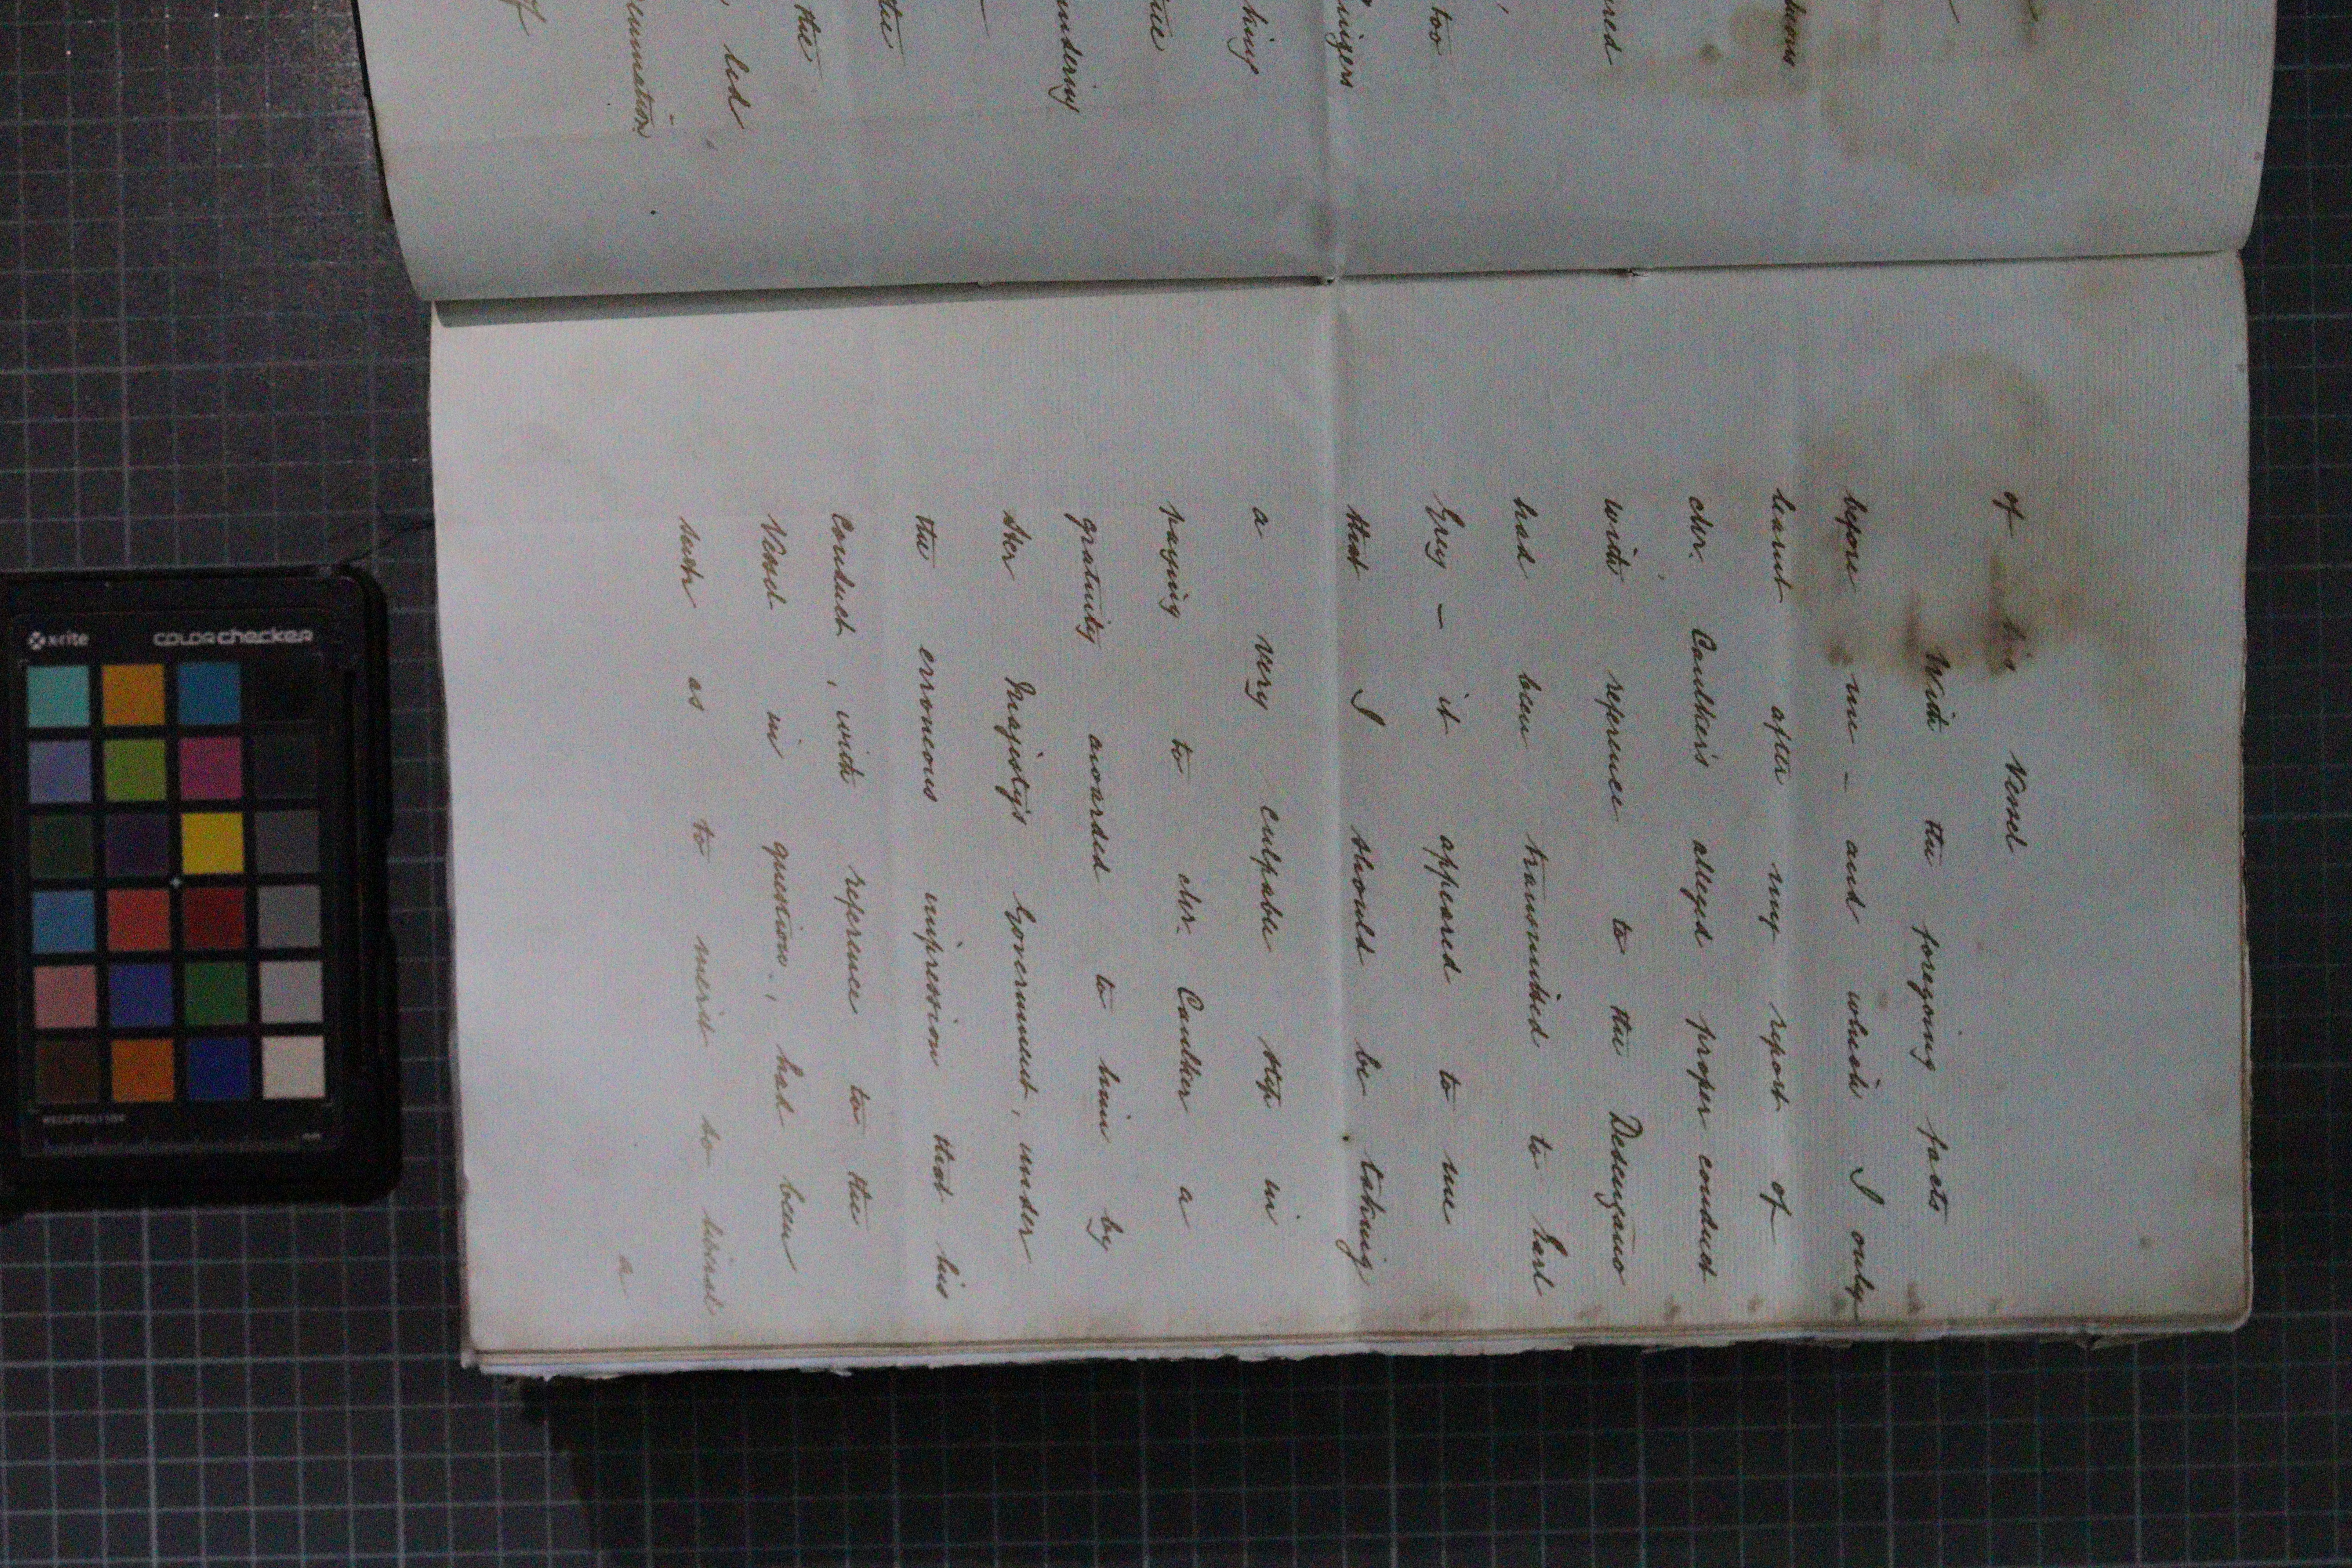 of his Vessel
With the foregoing facts
before me - and which I only
learnt after my report of
Mr. Caulker's alleged proper conduct
with reference to the Desengano
had been transmitted to Earl
Grey - it appeared to me
that I should be taking
a very culpable step in
paying to Mr. Caulker a
gratuity awarded to him by
Her Majesty's Government, under
the erroneous impression that his
Conduct, with reference to the
Vessel in question, had been
such as to merit so liberal
a
ared
too
king
the
the
, led
of
x-rite
colorchecker